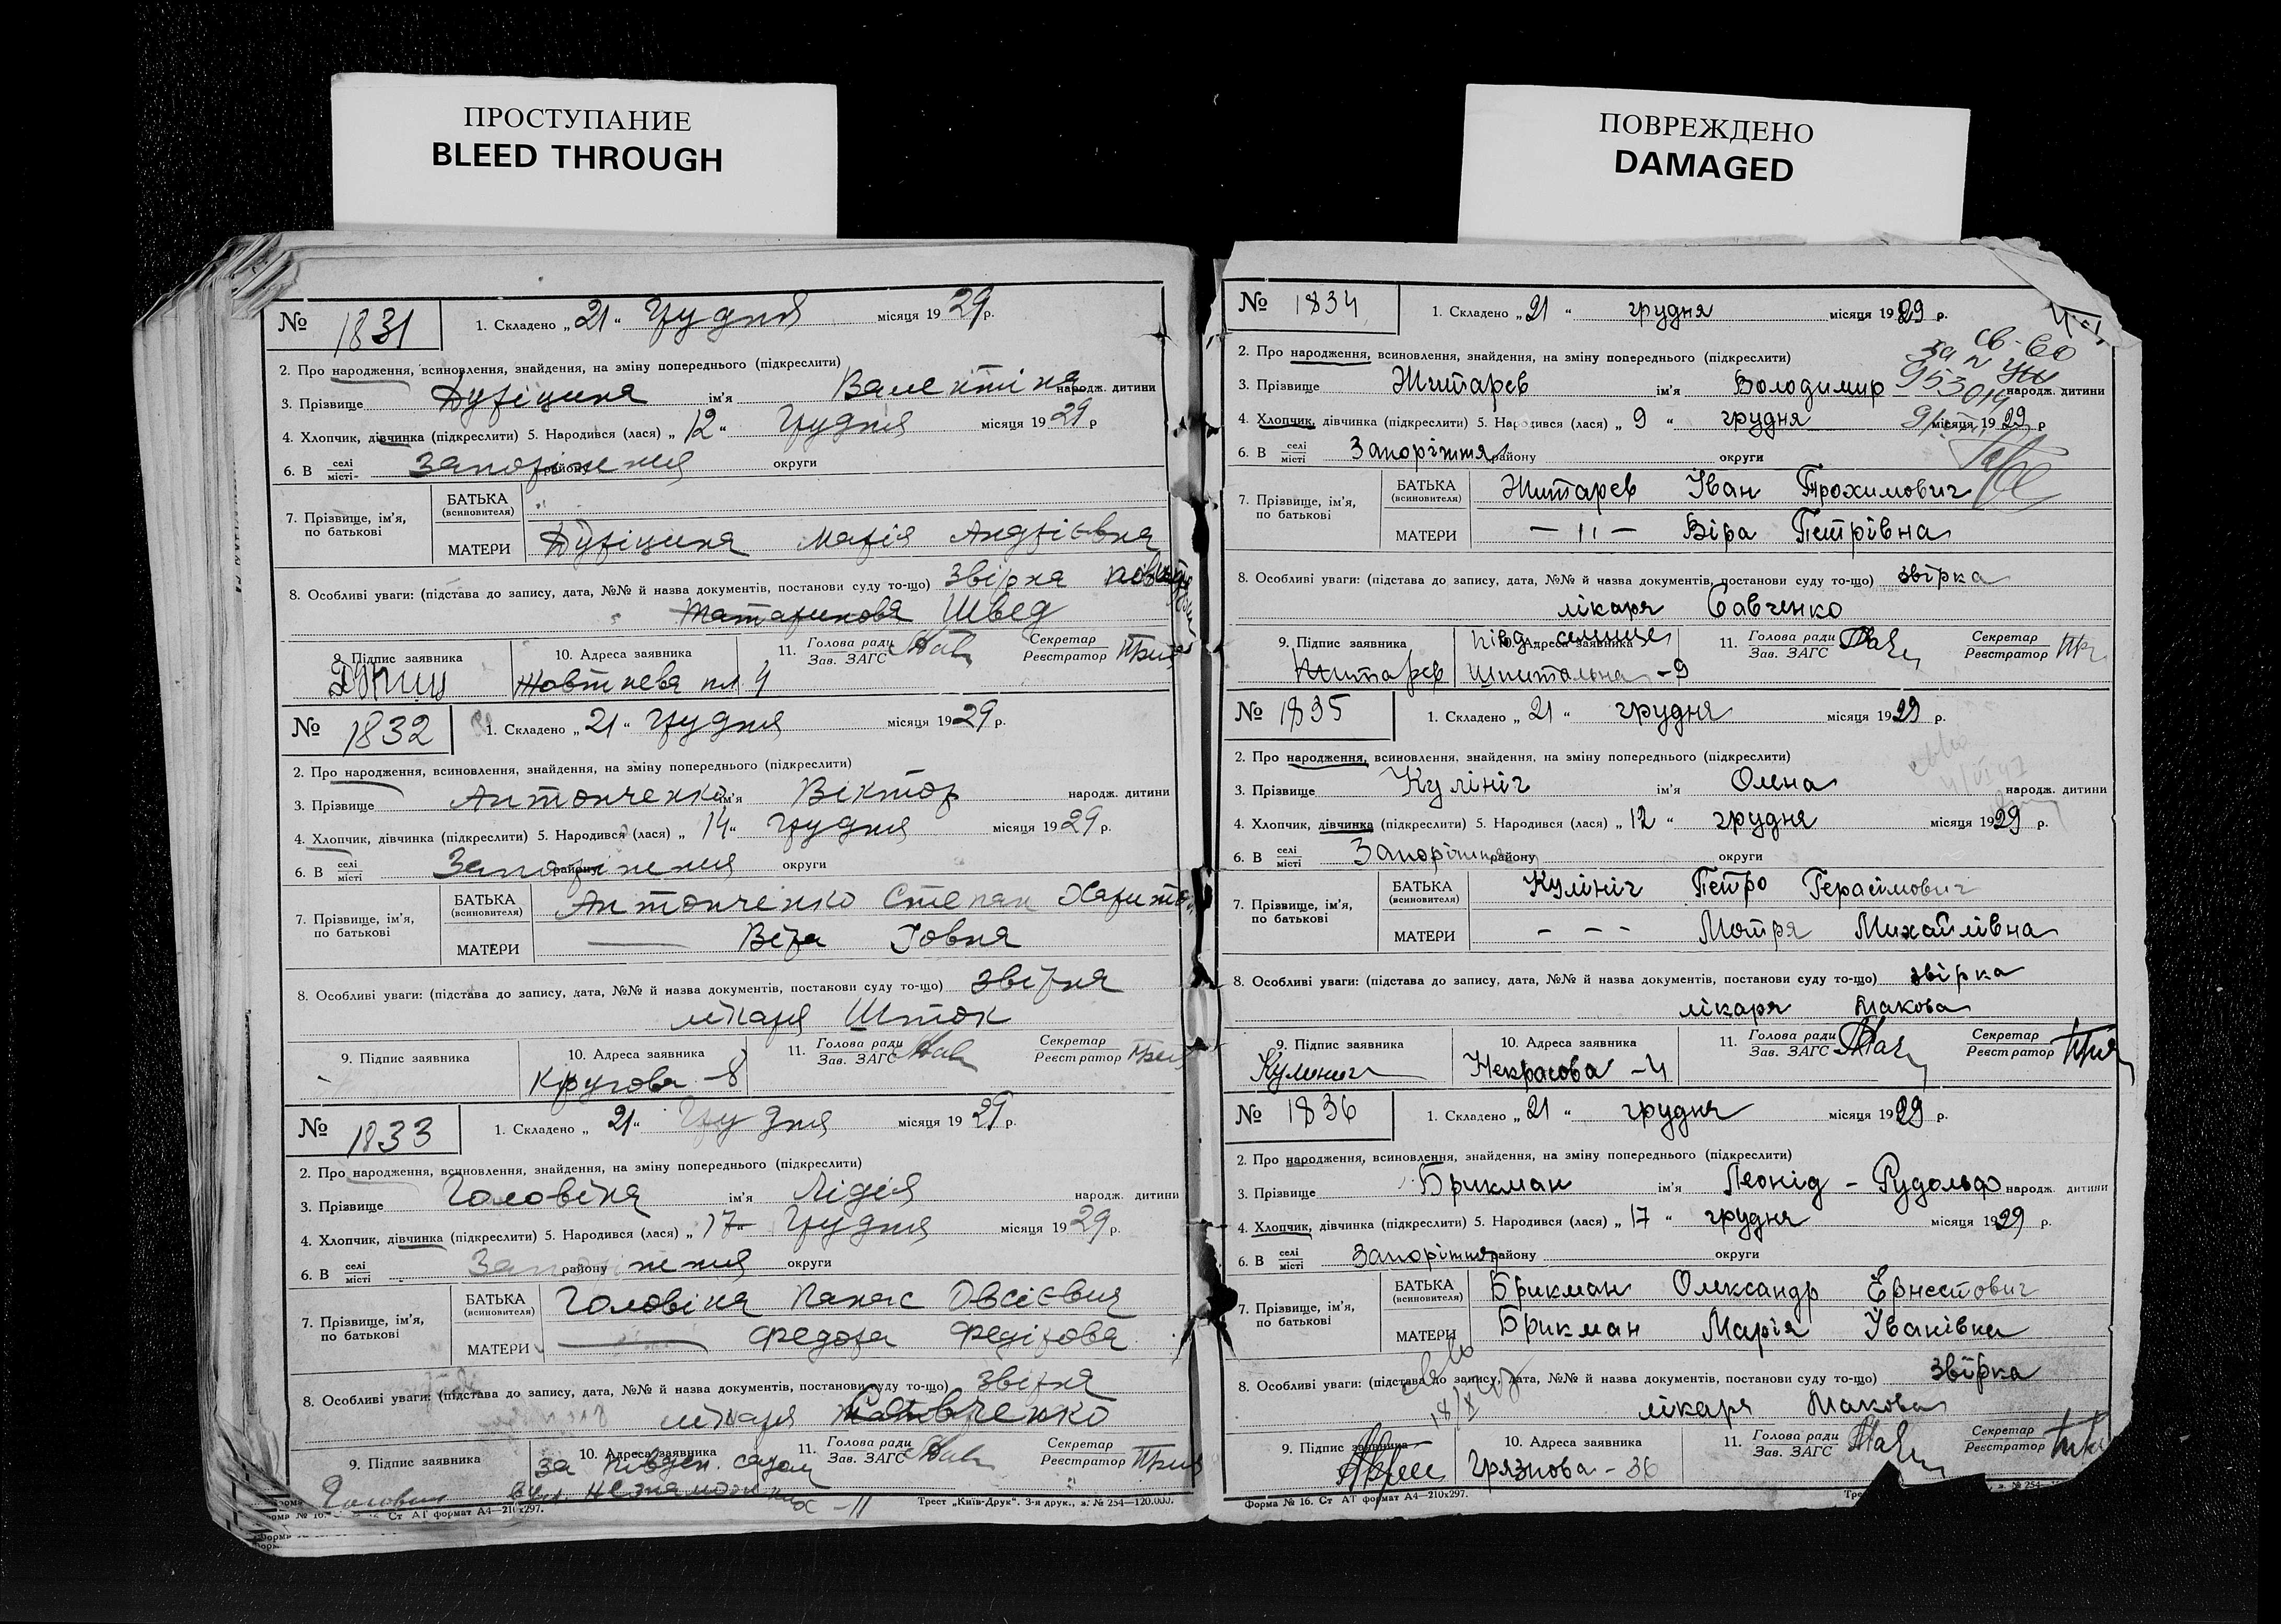 ПРОСТУПАНИЕ
BLEED THROUGH
ПОВРЕЖДЕНО
DAMAGED
№ 1831
1. Складено „21“ грудня місяця 1929 р.
2. Про народження, всиновлення, знайдення, на зміну попереднього (підкреслити)
3. Прізвище ім'я Валентіна народж. дитини
4. Хлопчик, дівчинка (підкреслити) 5. Народився (лася) „12“ грудня місяця 1929 р
6. В селі місті Запоріжжя району округи
7. Прізвище, ім'я, по батькові
БАТЬКА (всиновителя)
МАТЕРИ Марія Андрієвна
8. Особливі уваги: (підстава до запису, дата, №№ й назва документів, постанови суду то-що) звірка
Швед
9. Підпис заявника 10. Адреса заявника 11. Голова ради Зав. ЗАГС Секретар Реєстратор
Жовтнева пл 4
№ 1832
1. Складено „21“ грудня місяця 1929 р.
2. Про народження, всиновлення, знайдення, на зміну попереднього (підкреслити)
3. Прізвище Антонченко ім'я Віктор народж. дитини
4. Хлопчик, дівчинка (підкреслити) 5. Народився (лася) „14“ грудня місяця 1929 р.
6. В селі місті Запоріжжя району округи
7. Прізвище, ім'я, по батькові
БАТЬКА (всиновителя) Антонченко Степан
МАТЕРИ — Віра
8. Особливі уваги: (підстава до запису, дата, №№ й назва документів, постанови суду то-що) звірка
лікаря Шток
9. Підпис заявника 10. Адреса заявника 11. Голова ради Зав. ЗАГС Секретар Реєстратор
Кругова - 8
№ 1833
1. Складено „21“ грудня місяця 1929 р.
2. Про народження, всиновлення, знайдення, на зміну попереднього (підкреслити)
3. Прізвище Головіна ім'я Лідія народж. дитини
4. Хлопчик, дівчинка (підкреслити) 5. Народився (лася) „17 грудня місяця 1929 р.
6. В селі місті Запоріжжя району округи
7. Прізвище, ім'я, по батькові
БАТЬКА (всиновителя) Головіня Панас Овсієвич
МАТЕРИ — Федора
8. Особливі уваги: (підстава до запису, дата, №№ й назва документів, постанови суду то-що) звірка
лікаря Савченко
9. Підпис заявника 10. Адреса заявника 11. Голова ради Зав. ЗАГС Секретар Реєстратор
за півден. садом
вул. Незаможник - 11
Ст АТ формат А4—210х297.
Трест „Київ-Друк“. 3-я друк., з. № 254—120.000.
№ 1834
1. Складено „21“ грудня місяця 1929 р.
2. Про народження, всиновлення, знайдення, на зміну попереднього (підкреслити)
3. Прізвище Житарев ім'я Володимир народж. дитини
4. Хлопчик, дівчинка (підкреслити) 5. Народився (лася) „9“ грудня місяця 1929 р
6. В селі місті Запоріжжя району округи
7. Прізвище, ім'я, по батькові
БАТЬКА (всиновителя) Житарев Іван Трохимович
МАТЕРИ — " — Віра Петрівна
8. Особливі уваги: (підстава до запису, дата, №№ й назва документів, постанови суду то-що) звірка
лікаря Савченко
9. Підпис заявника 10. Адреса заявника 11. Голова ради Зав. ЗАГС Секретар Реєстратор
Житарев Шпитальна - 9
№ 1835
1. Складено „21“ грудня місяця 1929 р.
2. Про народження, всиновлення, знайдення, на зміну попереднього (підкреслити)
3. Прізвище Кулініч ім'я Олена народж. дитини
4. Хлопчик, дівчинка (підкреслити) 5. Народився (лася) „12“ грудня місяця 1929 р.
6. В селі місті Запоріжжя району округи
7. Прізвище, ім'я, по батькові
БАТЬКА (всиновителя) Кулініч Петро Герасімович
МАТЕРИ - - - Мотря Михайлівна
8. Особливі уваги: (підстава до запису, дата, №№ й назва документів, постанови суду то-що) звірка
лікаря Макова
9. Підпис заявника 10. Адреса заявника 11. Голова ради Зав. ЗАГС Секретар Реєстратор
Кулинич Некрасова - 4
№ 1836
1. Складено „21“ грудня місяця 1929 р.
2. Про народження, всиновлення, знайдення, на зміну попереднього (підкреслити)
3. Прізвище Брикман ім'я Леонід - Рудольф народж. дитини
4. Хлопчик, дівчинка (підкреслити) 5. Народився (лася) „17“ грудня місяця 1929 р.
6. В селі місті Запоріжжя району округи
7. Прізвище, ім'я, по батькові
БАТЬКА (всиновителя) Брикман Олександр Ернестович
МАТЕРИ Брикман Марія Іванівна
8. Особливі уваги: (підстава до запису, дата, №№ й назва документів, постанови суду то-що) звірка
лікаря Макова
9. Підпис заявника 10. Адреса заявника 11. Голова ради Зав. ЗАГС Секретар Реєстратор
Грязнова - 36
Форма № 16. Ст АТ формат А4—210х297.